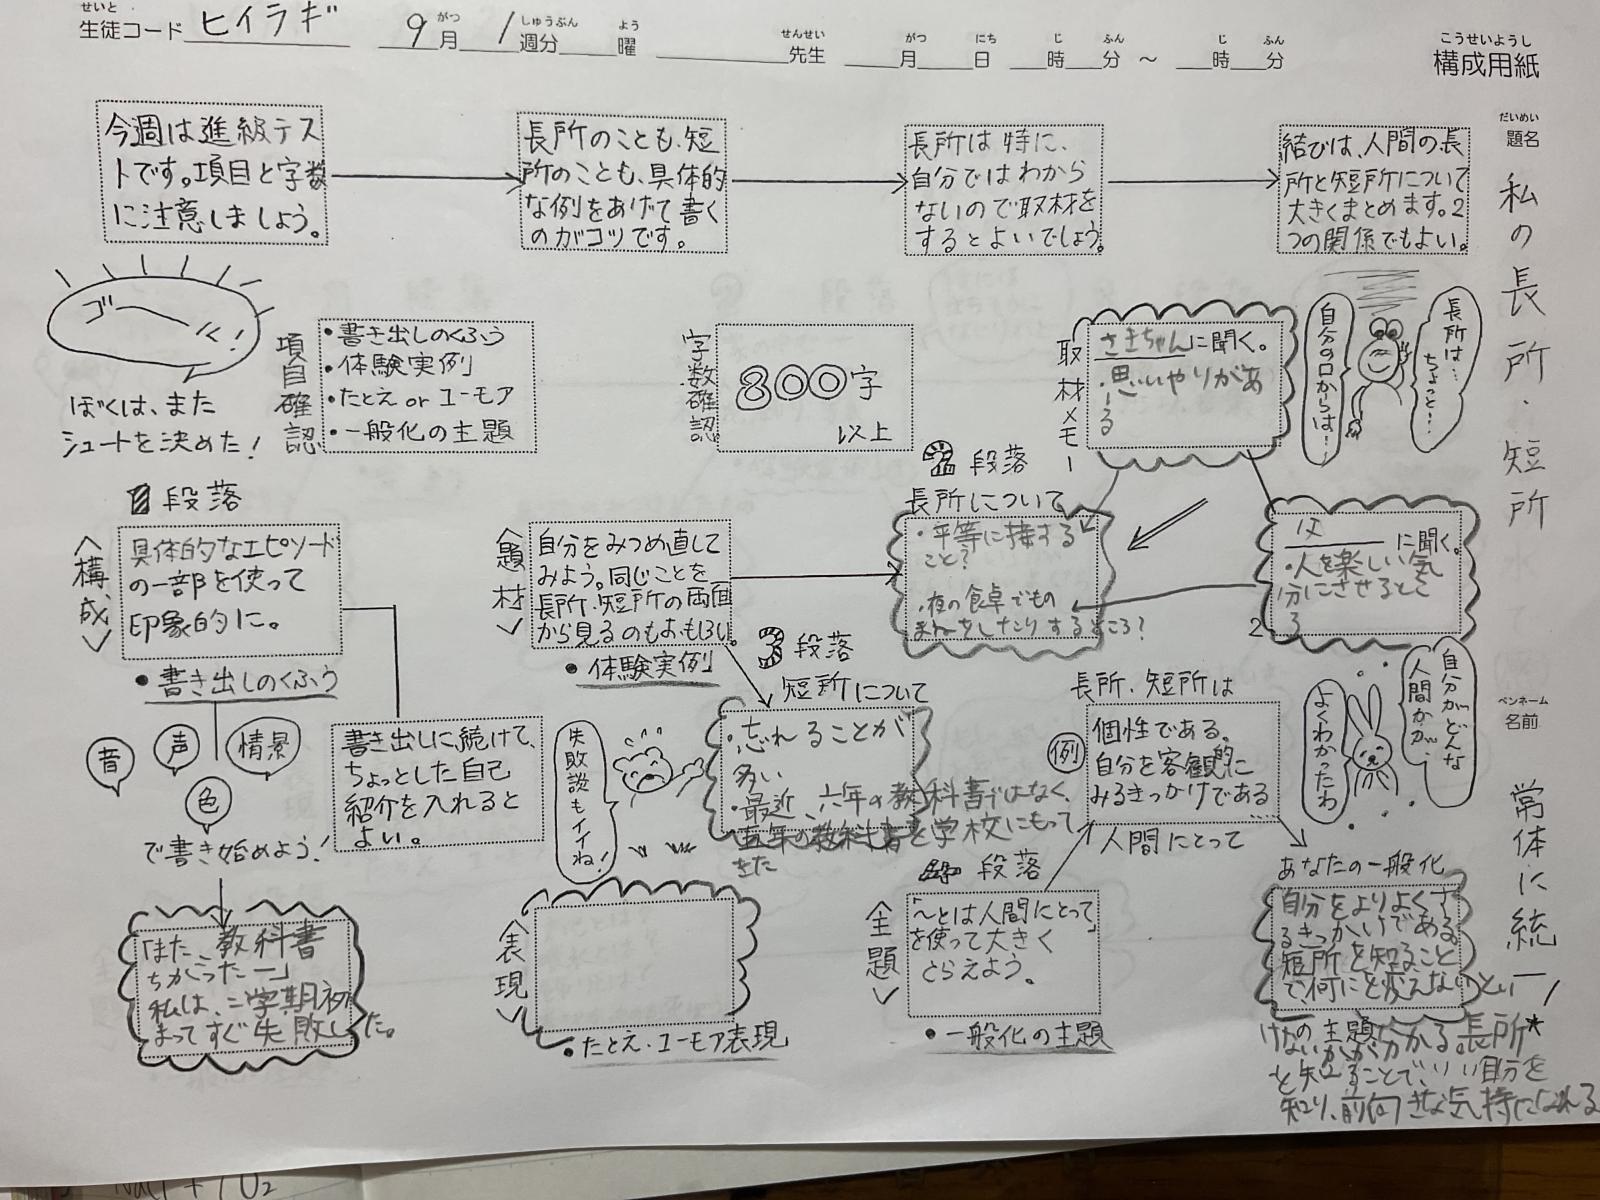 せいと
生徒コード ヒイラギ 9月 1週分 曜 先生 月 日 時 分 ～ 時 分
がつ しゅうぶん よう せんせい がつ にち じ ふん じ ふん
こうせいようし
構成用紙
だいめい
題名
私の長所・短所
ペンネーム
名前
常体に統一
今週は進級テス
トです。項目と字数
に注意しましょう。
長所のことも、短
所のことも、具体的
な例をあげて書く
のがコツです。
長所は特に、
自分ではわから
ないので取材を
するとよいでしょう。
結びは、人間の長
所と短所について
大きくまとめます。2
つの関係でもよい。
ゴール!
ぼくは、また
シュートを決めた!
項目確認
・書き出しのくふう
・体験実例
・たとえ or ユーモア
・一般化の主題
字数確認
800字
以上
取材メモー
さきちゃんに聞く。
・思いやりがあ
る
長所は…
ちょっと…
自分の口からは…
父に聞く。
・人を楽しい気
分にさせるとこ
ろ
2段落
長所について
・平等に接する
こと?
・夜の食卓でもの
まねをしたりするところ?
1段落
<構成>
具体的なエピソード
の一部を使って
印象的に。
・書き出しのくふう
音
声
情景
色
で書き始めよう!
書き出しに続けて、
ちょっとした自己
紹介を入れると
よい。
「また、教科書
ちがったー」
私は、二学期初
まってすぐ失敗した。
<題材>
自分をみつめ直して
みよう。同じことを
長所・短所の両面
から見るのもおもしろい。
・体験実例
3段落
短所について
・忘れることが
多い
・最近、六年の教科書ではなく、
五年の教科書を学校にもって
きた
失敗談も
イイね!
<表現>
・たとえ・ユーモア表現
長所、短所は
例
個性である。
自分を客観的に
みるきっかけである……
人間にとって
自分がどんな
人間かが、
よくわかったわ
段落
<主題>
「～とは人間にとって」
を使って大きく
とらえよう。
・一般化の主題
あなたの一般化
自分をよりよくす
るきっかけである。
短所を知ること
で、何にを変えないとい
けないかが分かる。長所
の主題
を知ることで、いい自分を
知り、前向きな気持になれる